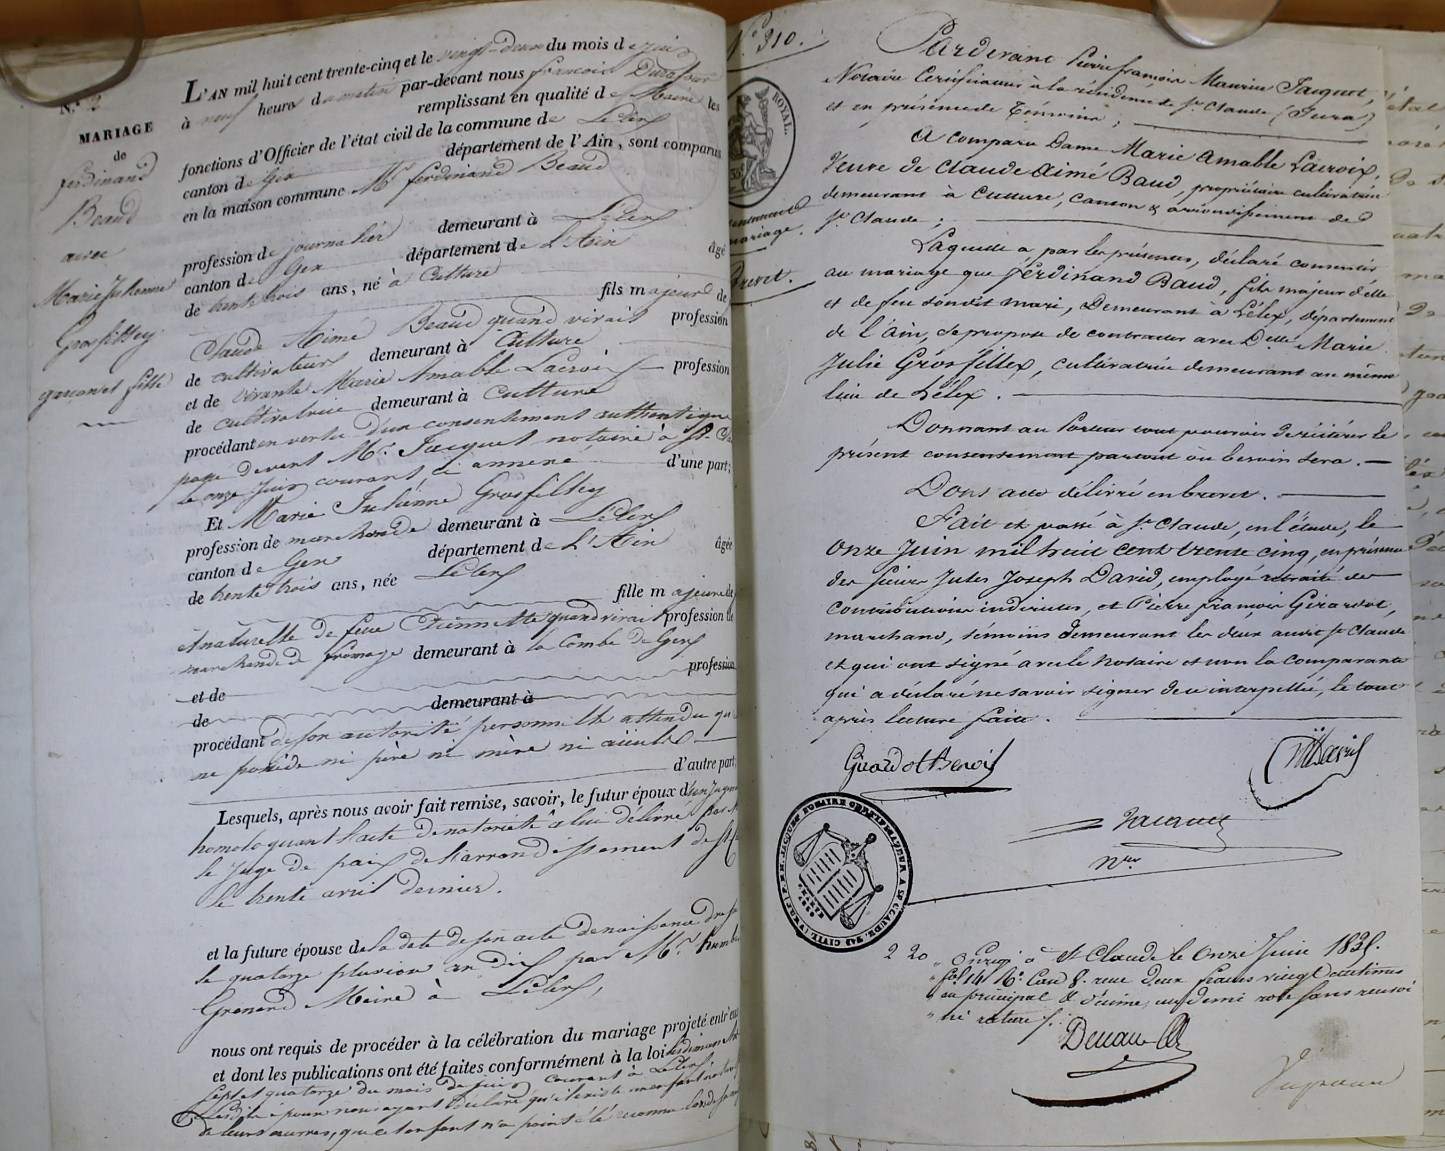 N.° 2
MARIAGE
de
ferdinand
Beaud
avec
Marie Julienne
Grosfilley
garçon et fille
L'AN mil huit cent trente-cinq et le vingt-deux du mois de juin
à neuf heures du matin par-devant nous françois Duraffour
remplissant en qualité de Maire les
fonctions d'Officier de l'état civil de la commune de Lélex
canton de Gex département de l'Ain, sont comparus
en la maison commune Mr ferdinand Beaud
profession de journalier demeurant à Lélex
canton de Gex département de L'Ain âgé
de trente trois ans, né à Culture
fils majeur de
Claude Aimé Beaud quand vivait profession
de cultivateur demeurant à Culture
et de vivante Marie Amable Lacroix profession
de cultivatrice demeurant à Culture
procédant en vertu d'un consentement authentique
passé devant Mr. Jacquet notaire à St. Cla
le onze juin courant ci annexé d'une part;
Et Marie Julienne Grosfilley
profession de marchande demeurant à Lélex
canton de Gex département de L'Ain âgée
de trente trois ans, née Lélex
fille majeure de
et naturelle de feue Etiennette quand vivait profession de
marchande de fromage demeurant à la Combe de Gex
et de profession
de demeurant à
procédant de son autorité personnelle attendu qu
ne possède ni père ni mère ni aïeules
d'autre part;
Lesquels, après nous avoir fait remise, savoir, le futur époux d'un Jugem
homologuant l'acte de notoriété à lui délivré par Mr
le Juge de paix de l'arrondissement de St Cl
le trente avril dernier.
et la future épouse de la date de son acte de naissance dressé
le quatorze pluviose an dix par Mr. humb
Grenard Maire à Lélex,
nous ont requis de procéder à la célébration du mariage projeté entr'eux
et dont les publications ont été faites conformément à la loi les dimanches
sept et quatorze du mois de juin courant à Lélex
N.° 310.
ROYAL.
mariage.
Brevet.
Pardevant Pierre françois Maurice Jacquet,
Notaire Certificateur à la résidence de St. Claude (Jura)
et en présence de Témoins ;
A comparu Dame Marie Amable Lacroix,
Veuve de Claude Aimé Baud, propriétaire cultivatrice
demeurant à Culture, Canton & arrondissement de
St. Claude ;
Laquelle a par les présentes, déclaré consentir
au mariage que ferdinand Baud, fils majeur d'elle
et de feu sondit mari, Demeurant à Lélex, département
de l'ain, se propose de contracter avec Dlle Marie
Julie Grosfillex, cultivatrice demeurant au même
lieu de Lélex.
Donnant au Porteur tout pouvoir de réitérer le
présent consentement partout où besoin sera.
Dont acte délivré en brevet.
Fait et passé à St. Claude, en l'étude, le
onze Juin mil huit cent trente cinq, en présence
des sieurs Jules Joseph David, employé retraité des
contributions indirectes, et Pierre françois Girardot,
marchand, témoins demeurant les deux audit St Claude
et qui ont signé avec le Notaire et non la Comparante
qui a déclaré ne savoir signer de ce interpellée, le tout
après lecture faite.
Girardot Benoit
David
Jacquet
nre
JACQUET NOTAIRE CERTIFICATEUR A ST CLAUDE
2 20 Enregé à St Claude le Onze Juin 1835.
fol 14 Ro. Case 8. reçu deux francs vingt Centimes
en principal & décime, un demi role sans renvoi
ni rature